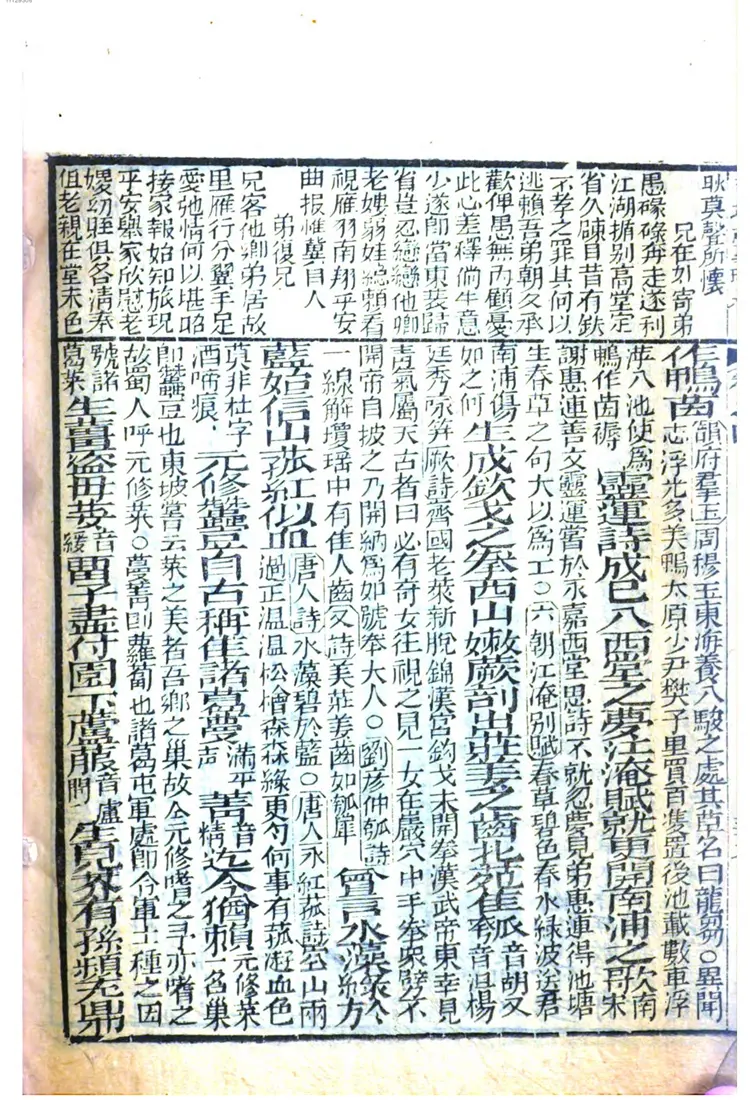 耿莫罄所懷
兄在外寄弟
愚碌碌奔走逐利
江湖揖别高堂定
省久踈目昔有
不孝之罪其何以
逃賴吾弟朝夕承
歡俾愚無内顧憂
此心差釋倘生意
少遂即當束裝歸
省豈忍戀戀他鄉
老嫂弱娃緫賴看
視雁羽南翔平安
曲报惟冀目人
弟復兄
兄客他鄉弟居故
里雁行分翼手足
愛弛情何以堪昭
接家報始知旅現
平安舉家欣慰老
嫂幼俱各清奉
但老親在堂木色
作鴨茵韻府羣玉周穆王東海養八駿之處其草名曰龍芻○異聞
志浮光多美鴨太原少尹樊千里買百隻置後池載數車浮
萍入池使為鴨作茵褥 靈運詩成已入西堂之夢江淹賦就更開南浦之歌宋
謝惠連善文靈運嘗於永嘉西堂思詩不就忽夢見弟惠連得池塘
生春草之句大以為工○六朝江淹别賦春草碧色春水緑波送君
南浦傷如之何 生成欽戈之拳西山嫩蕨剖出莊姜之齒北苑隹瓠音胡又
廷秀咏笋厥詩齊國老萊新脫錦漢宮鈎戈未開拳漢武帝東幸見
青氣屬天古者曰必有奇女往視之見一女在巖穴中手拳衆擘不
開帝自披之乃開納為如號拳大人○劉彥仲瓠詩
一線解瓊瑶中有隹人齒又詩美莊姜齒如瓠犀 曾言水藻綠於
藍始信山菰紅似血唐人詩水藻碧於藍○唐人永紅菰詩空山雨
過正温温松檜森森緑更勻何事有菰逰血色
莫非杜宇洒啼痕 元修蠶豆自古稱隹諸葛蔓菁音精迄今猶頼元修菜
即蠶豆也東坡嘗云菜之美者吾鄉之巢故人元修嗜之予亦嗜之
故蜀人呼元修菜○蔓菁即蘿蔔也諸葛屯軍處即令軍士種之因
號諸葛菜 生薑盗母荽音綏留子盡付園丁蘆菔音蘆生兒芥有孫頻充鼎